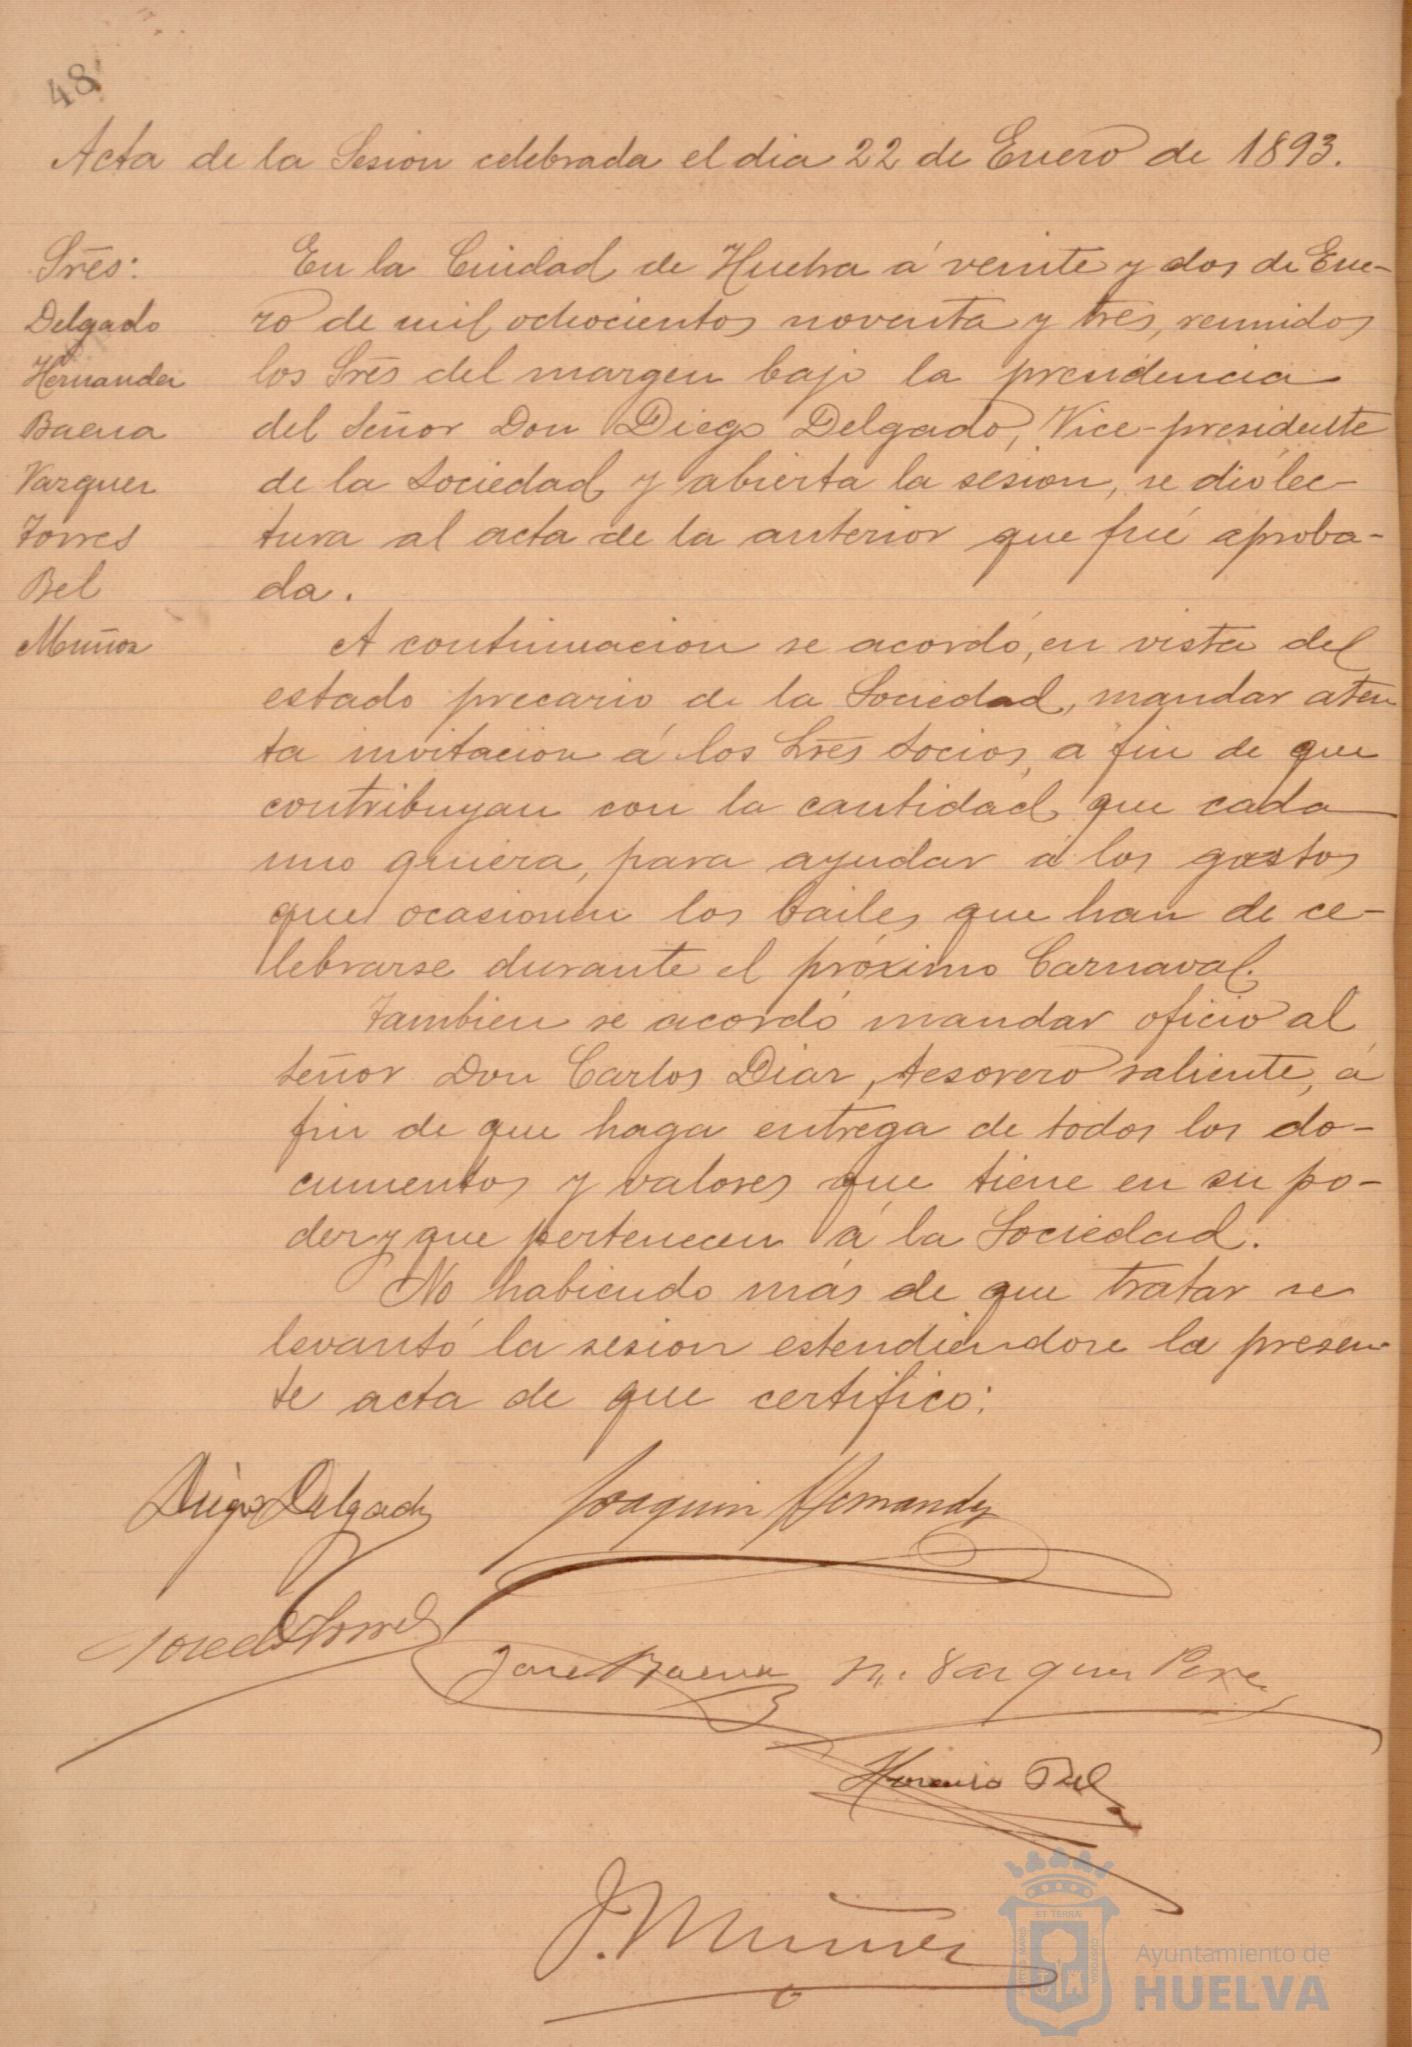 48
Acta de la Sesion celebrada el dia 22 de Enero de 1893.
Sres:
Delgado
Hernandez
Baena
Vazquez
Torres
Bel
Muñoz
En la Ciudad de Huelva á veinte y dos de Ene-
ro de mil ochocientos noventa y tres, reunidos
los Sres del margen bajo la presidencia
del Señor Don Diego Delgado, Vice-presidente
de la Sociedad y abierta la sesion, se dió lec-
tura al acta de la anterior que fué aproba-
da.
A continuacion se acordó, en vista del
estado precario de la Sociedad, mandar aten
ta invitacion á los Sres Socios, a fin de que
contribuyan con la cantidad que cada
uno quiera, para ayudar á los gastos
que ocasionen los bailes que han de ce-
lebrarse durante el próximo Carnaval.
Tambien se acordó mandar oficio al
Señor Don Carlos Diaz, tesorero saliente, á
fin de que haga entrega de todos los do-
cumentos y valores que tiene en su po-
der y que pertenecen á la Sociedad.
No habiendo más de que tratar se
levantó la sesion estendiendose la presen-
te acta de que certifico:
Diego Delgado
Joaquin Hernandez
Jose de Torres
Jose Baena
M. Vazquez Perez
Bel
J. Muñoz
ET TERRA
CUSTODIA
PORTUS MARIS
Ayuntamiento de
HUELVA